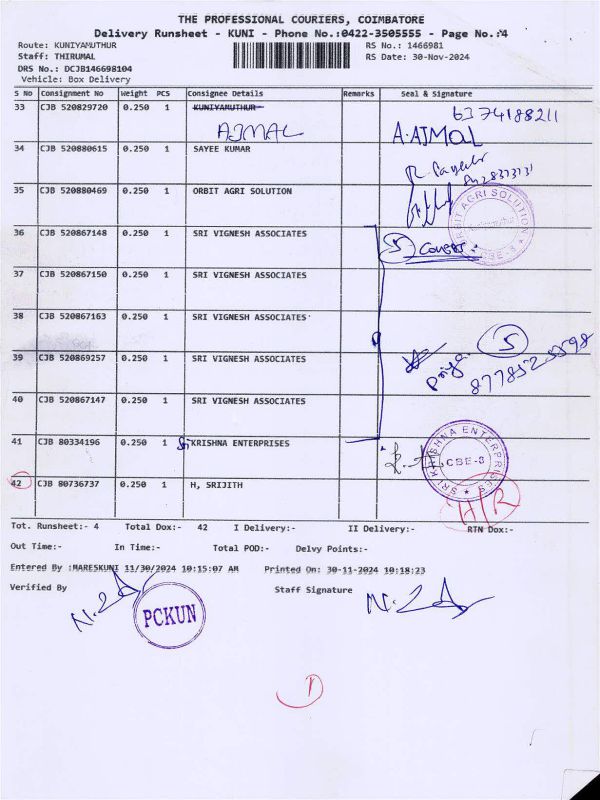 THE PROFESSIONAL COURIERS, COIMBATORE
Delivery Runsheet - KUNI - Phone No.:0422-3505555 - Page No.:4
Route: KUNIYAMUTHUR RS No.: 1466981
Staff: THIRUMAL RS Date: 30-Nov-2024
DRS No.: DCJB146698104
Vehicle: Box Delivery
S No Consignment No Weight PCS Consignee Details Remarks Seal & Signature
33 CJB 520829720 0.250 1 KUNIYAMUTHUR 6374188211
AJMAL A.AJMAL
34 CJB 520880615 0.250 1 SAYEE KUMAR
35 CJB 520880469 0.250 1 ORBIT AGRI SOLUTION
ORBIT AGRI SOLUTION
CBE-8
36 CJB 520867148 0.250 1 SRI VIGNESH ASSOCIATES 5 Covers
37 CJB 520867150 0.250 1 SRI VIGNESH ASSOCIATES
38 CJB 520867163 0.250 1 SRI VIGNESH ASSOCIATES
39 CJB 520869257 0.250 1 SRI VIGNESH ASSOCIATES 5
Priya
40 CJB 520867147 0.250 1 SRI VIGNESH ASSOCIATES
41 CJB 80334196 0.250 1 Sri KRISHNA ENTERPRISES
SRI KRISHNA ENTERPRISES
CBE-8
42 CJB 80736737 0.250 1 H, SRIJITH H/R
Tot. Runsheet:- 4 Total Dox:- 42 I Delivery:- II Delivery:- RTN Dox:-
Out Time:- In Time:- Total POD:- Delvy Points:-
Entered By :MARESKUNI 11/30/2024 10:15:07 AM Printed On: 30-11-2024 10:18:23
Verified By Staff Signature
PCKUN
1